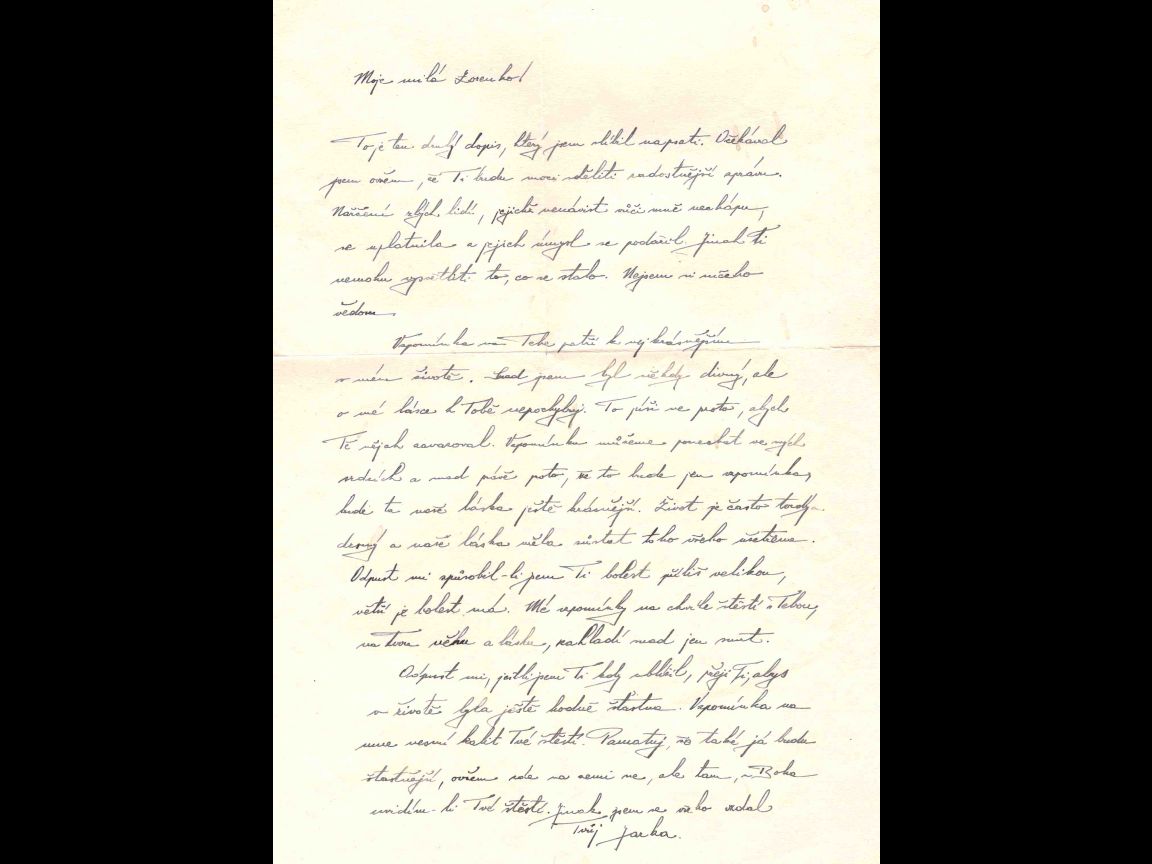 Moje milá Zorenko!
To je ten druhý dopis, který jsem slíbil napsati. Očekával
jsem ovšem, že Ti budu moci sděliti radostnější zprávu.
Nařčení zlých lidí, jejichž nenávist vůči mně nechápu,
se uplatnila a jejich úmysl se podařil. Jinak Ti
nemohu vysvětliti to, co se stalo. Nejsem si ničeho
vědom.
Vzpomínka na Tebe patří k nejkrásnějším
v mém životě. Snad jsem byl někdy divný, ale
o mé lásce k Tobě nepochybuj. To píši ne proto, abych
Tě nějak zavazoval. Vzpomínku můžeme ponechat ve svých
srdcích a snad právě proto, že to bude jen vzpomínka,
bude ta naše láska ještě krásnější. Život je často
a naše láska měla zůstat toho všeho ušetřena.
Odpust mi způsobil-li jsem Ti bolest příliš velikou,
větší je bolest má. Mé vzpomínky na chvíle štěstí s Tebou,
na Tvou něhu a lásku, zahladí snad jen smrt.
Odpust mi, jestli jsem Ti kdy ublížil, přeji Ti, abys
v životě byla ještě hodně šťastna. Vzpomínka na
mne nesmí kalit Tvé štěstí. Pamatuj, že také já budu
šťastnější, ovšem zde na zemi ne, ale tam, u Boha
uvidím-li Tvé štěstí. Jinak jsem se všeho vzdal
Tvůj Jarka.